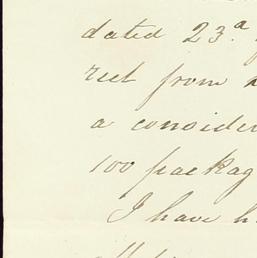 dated 23.ª
rect from
a consider
100 packag
I have h